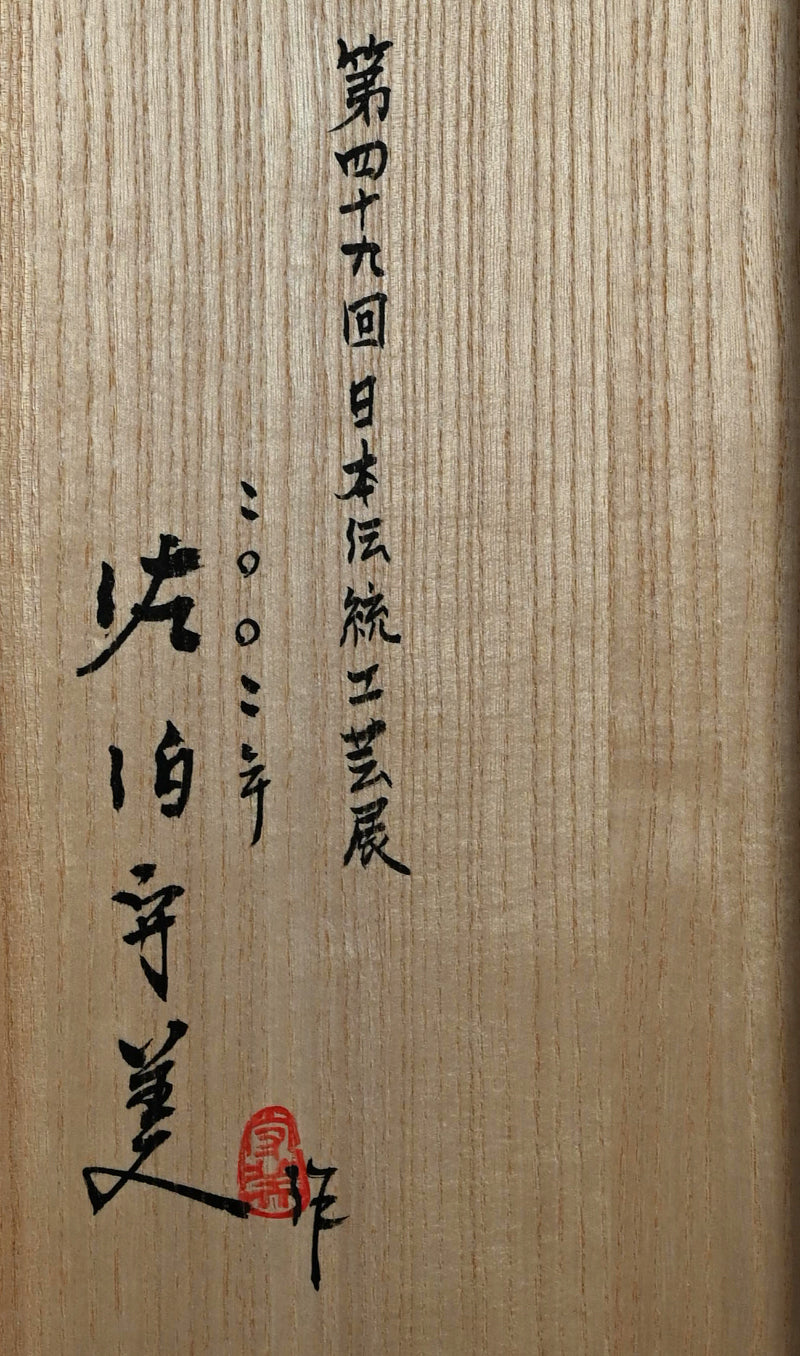 第四十九回日本伝統工芸展
二〇〇二年
佐伯守美
作
守美